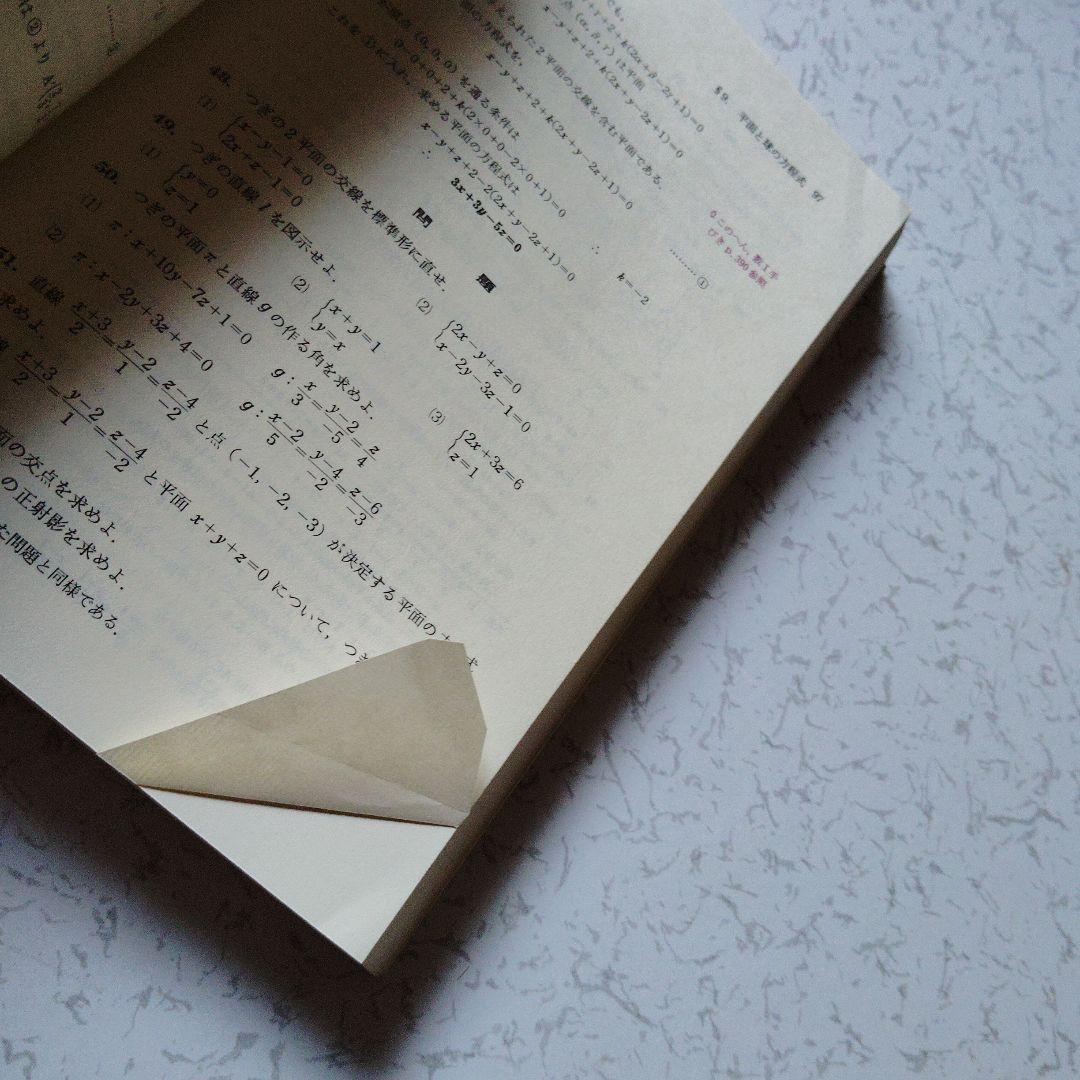 59. 平面と球の方程式 97
x−y+z+2+k(2x+y−2z+1)=0
は平面
x−y+z+2+k(2x+y−2z+1)=0
2平面の交線を含む平面である。
の方程式を,
x−y+z+2+k(2x+y−2z+1)=0 ………①
(0, 0, 0) を通る条件は
0−0+0+2+k(2×0+0−2×0+1)=0 ∴ k=−2
これを①に入れ, 求める平面の方程式は
x−y+z+2−2(2x+y−2z+1)=0
∴ 3x+3y−5z=0
このへん, 数I千
びきp.390参照
問 題
48. つぎの2平面の交線を標準形に直せ.
(1) {x−y−1=0
2x+z−1=0
(2) {2x−y+z=0
x−2y−3z−1=0
49. つぎの直線 l を図示せよ.
(1) {y=0
z=1
(2) {x+y=1
y=x
(3) {2x+3z=6
z=1
50. つぎの平面πと直線gの作る角を求めよ.
(1) π : x+10y−7z+1=0 g : x/3=(y−2)/−5=z/4
(2) π : x−2y+3z+4=0 g : (x−2)/5=(y−4)/−2=(z−6)/−3
51. 直線 (x+3)/2=(y−2)/1=(z−4)/−2 と点 (−1, −2, −3) が決定する平面の
求めよ.
(x+3)/2=(y−2)/1=(z−4)/−2 と平面 x+y+z=0 について, つぎ
の交点を求めよ.
の正射影を求めよ.
問題と同様である.
は②より